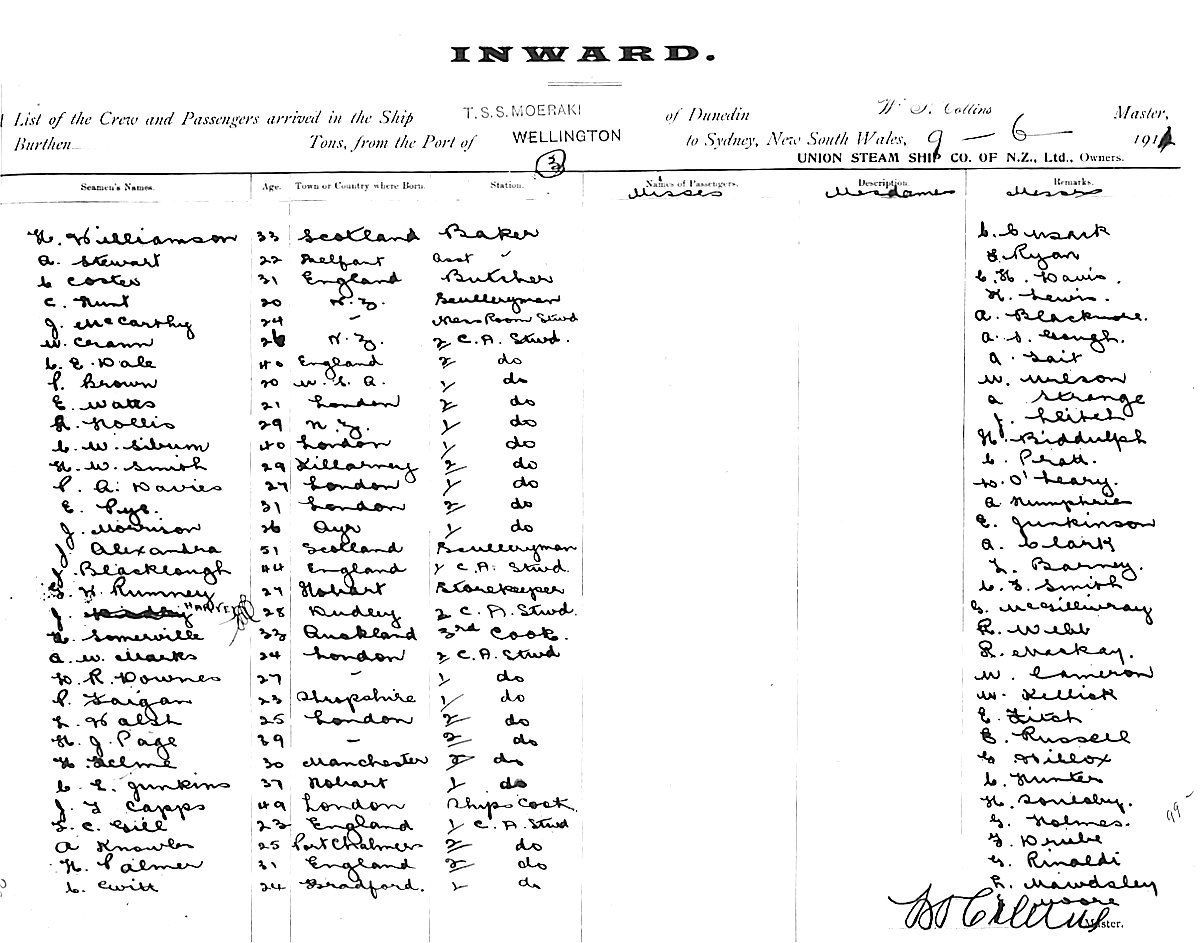 INWARD.
List of the Crew and Passengers arrived in the Ship T.S.S. MOERAKI of Dunedin W. J. Collins Master,
Burthen Tons, from the Port of WELLINGTON to Sydney, New South Wales, 9 – 6 191
3 UNION STEAM SHIP CO. OF N.Z., Ltd., Owners.
Seamen's Names. Age. Town or Country where Born. Station. Names of Passengers. Description. Remarks.
Misses Mesdames Messrs
H. Williamson 33 Scotland Baker C. Cusack
A. Stewart 22 Belfast Asst " J. Ryan
C Coster 31 England Butcher C. H. Davis.
C. Hunt 20 N.Z. Sculleryman H. Lewis.
J. McCarthy 24 – Mess Room Stwd A. Blackmore.
W. Crann 26 N.Z. 2 C.A. Stwd. A. S. Gough.
C. E. Dale 40 England 2 do A. Tait
P. Brown 20 U.S.A. 1 do W. Wilson
E. Watts 21 London 2 do A Strange
R. Hollis 29 N.Z. 1 do J. Leitch
C. W. Siburn 40 London 1 do H. Biddulph
H. W. Smith 29 Killarney 2 do C. Pratt.
P. A. Davies 27 London 1 do D. O'Leary.
E. Pye. 31 London 2 do A Humphries
J. Morrison 26 Ayr 1 do E. Junkinson
J. Alexandra 51 Scotland Sculleryman A. Clark
J. Blacklough 44 England 1 C.A. Stwd. L. Barney.
H Rumney 27 Hobart Storekeeper C. F. Smith
J. HARVEY 28 Dudley 2 C.A. Stwd. G. McGillivray
Somerville 33 Auckland 3rd Cook. R. Webb
A. W. Marks 24 London 2 C.A. Stwd R. Mackay.
D. R. Downes 27 – 1 do W. Cameron
P. Faigan 23 Shropshire 1 do W. Killick
L. Walsh 25 London 2 do E. Fitch
H. J. Page 39 – 2 do E. Russell
H. Helme 30 Manchester 2 do G Willox
C. E. Junkins 37 Hobart 1 do C. Hunter
J. F Capps 49 London Ships Cook. H. Soulsby.
F. C. Gill 23 England 1 C.A. Stwd G. Holmes.
A Knowles 25 Port Chalmers 2 do F. Drube
H. Palmer 31 England 2 do G. Rinaldi
C. Ewitt 24 Bradford. 1 do L. Mawdsley
Moore
99
W J Collins Master.